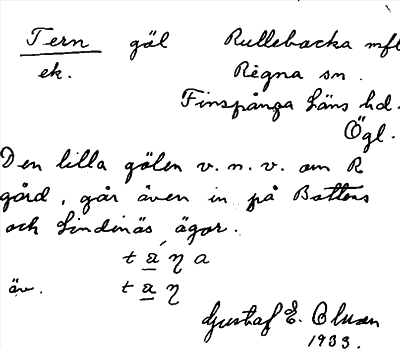 Tern göl Rullebacka mfl
ek. Regna sn.
Finspånga läns hd.
Ögl.
Den lilla gölen v. n. v. om R
gård, går även in på Bottens
och Lindnäs ägor.
t a ŋ a
äv. t a ŋ
Gustaf E. Olsson
1933.